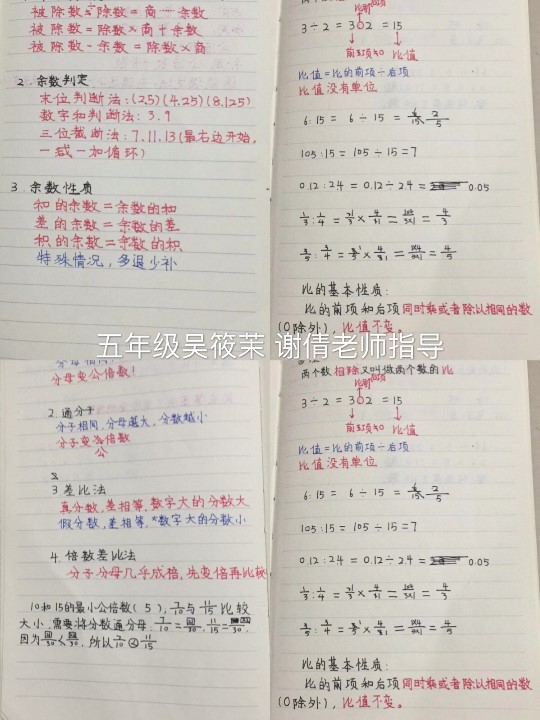 被除数÷除数=商……余数
被除数=除数×商+余数
被除数-余数=除数×商
2.余数判定
末位判断法:(2.5)(4.25)(8.125)
数字和判断法:3.9
三位截断法:7.11.13(最右边开始,
一减一加循环)
3.余数性质
和的余数=余数的和
差的余数=余数的差
积的余数=余数的积
特殊情况,多退少补
比号 后项
3÷2=3:2=1.5
前项 比值
比值=比的前项÷后项
比值没有单位
6:15=6÷15=6/15 2/5
105:15=105÷15=7
0.12:2.4=0.12÷2.4=0.05
1/3:1/4=1/3×4/1=1×4/3×1=4/3
比的基本性质:
比的前项和后项同时乘或者除以相同的数
(0除外),比值不变。
五年级吴筱茉 谢倩老师指导
分母变公倍数!
2.通分子
分子相同,分母越大,分数越小
分子变公倍数
公
3 差比法
真分数,差相等,数字大的分数大
假分数,差相等,数字大的分数小
4.倍数差比法
分子分母几乎成倍,先变倍再比较
10和15的最小公倍数(5),7/10与11/15比较
大小,需要将分数通分母:7/10= /30,11/15= /30,
因为 /30< /30,所以7/10<11/15
两个数相除又叫做两个数的比
比号 后项
3÷2=3:2=1.5
前项 比值
比值=比的前项÷后项
比值没有单位
6:15=6÷15=6/15 2/5
105:15=105÷15=7
0.12:2.4=0.12÷2.4=0.05
1/3:1/4=1/3×4/1=1×4/3×1=4/3
比的基本性质:
比的前项和后项同时乘或者除以相同的数
(0除外),比值不变。